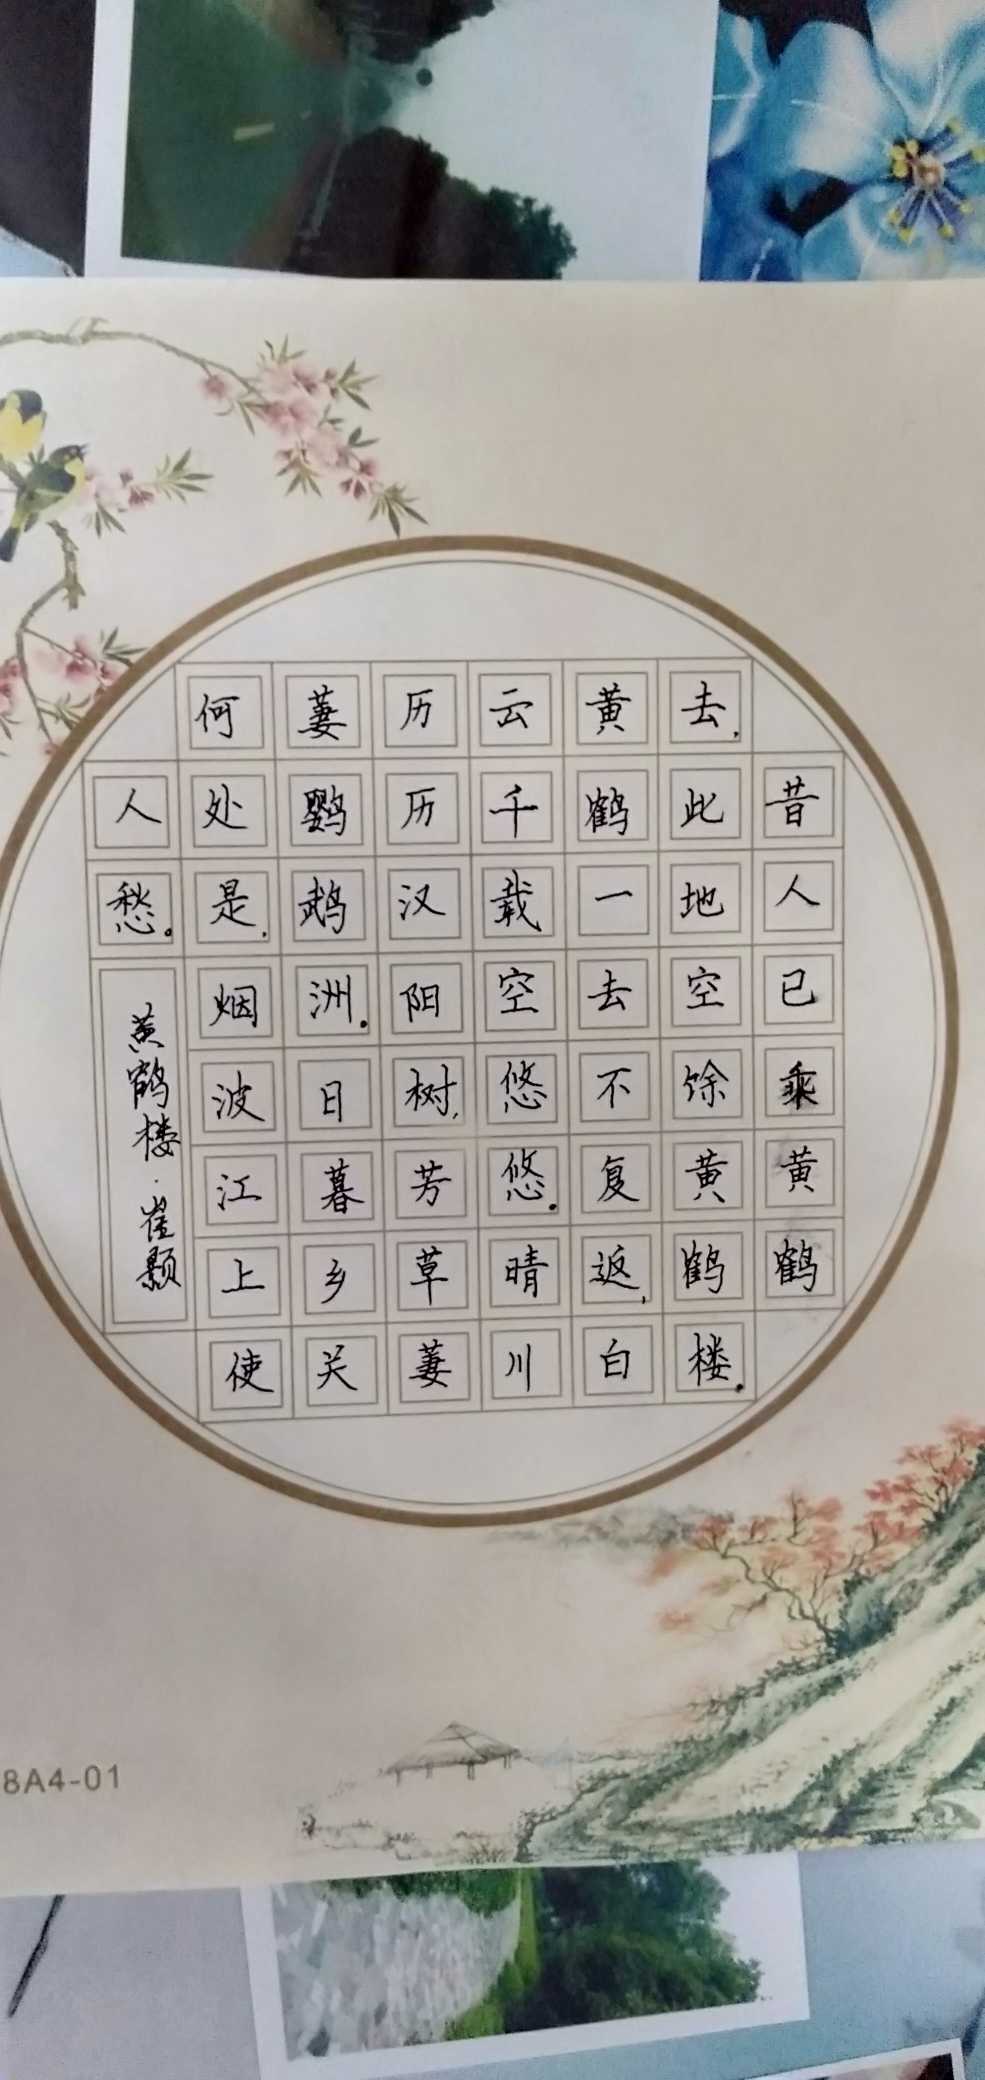 昔人已乘黄鹤
去，此地空馀黄鹤楼。
黄鹤一去不复返，白
云千载空悠悠。晴川
历历汉阳树，芳草萋
萋鹦鹉洲。日暮乡关
何处是，烟波江上使
人愁。
黄鹤楼·崔颢
8A4-01